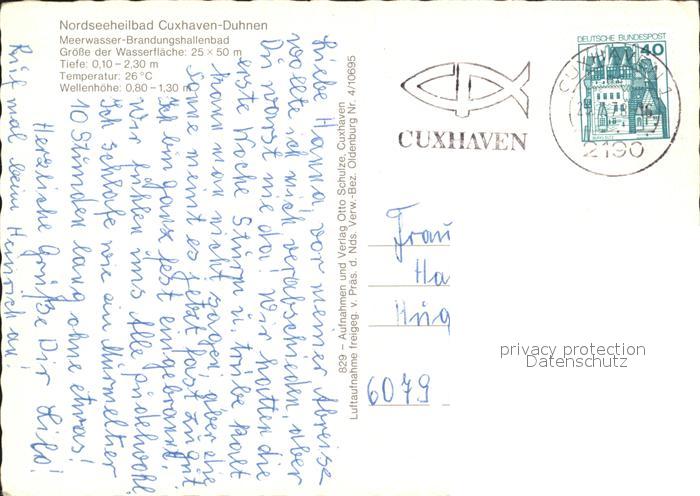 Nordseeheilbad Cuxhaven-Duhnen
Meerwasser-Brandungshallenbad
Größe der Wasserfläche: 25 × 50 m
Tiefe: 0,10 – 2,30 m
Temperatur: 26°C
Wellenhöhe: 0,80 – 1,30 m
Liebe Hanna, vor meiner Abreise
wollte ich mich verabschieden, aber
Du warst nie da! Wir hatten die
erste Woche Sturm u. trübe kalt
kann man nicht sagen, aber die
Sonne meint es jetzt fast zu gut
Ich bin ganz fest eingebrannt.
Wir fühlen uns Alle pudelwohl
Ich schlafe wie ein Murmeltier
10 Stunden lang ohne etwas!
Herzliche Grüße Dir
Ruf mal beim Heinrich an!
829 – Aufnahmen und Verlag Otto Schulze, Cuxhaven
Luftaufnahme freigeg. v. Präs. d. Nds. Verw.-Bez. Oldenburg Nr. 4/10695
CUXHAVEN
DEUTSCHE BUNDESPOST
40
CUXHAVEN 1
2190
Frau
Ha
Hüg
6079
privacy protection
Datenschutz